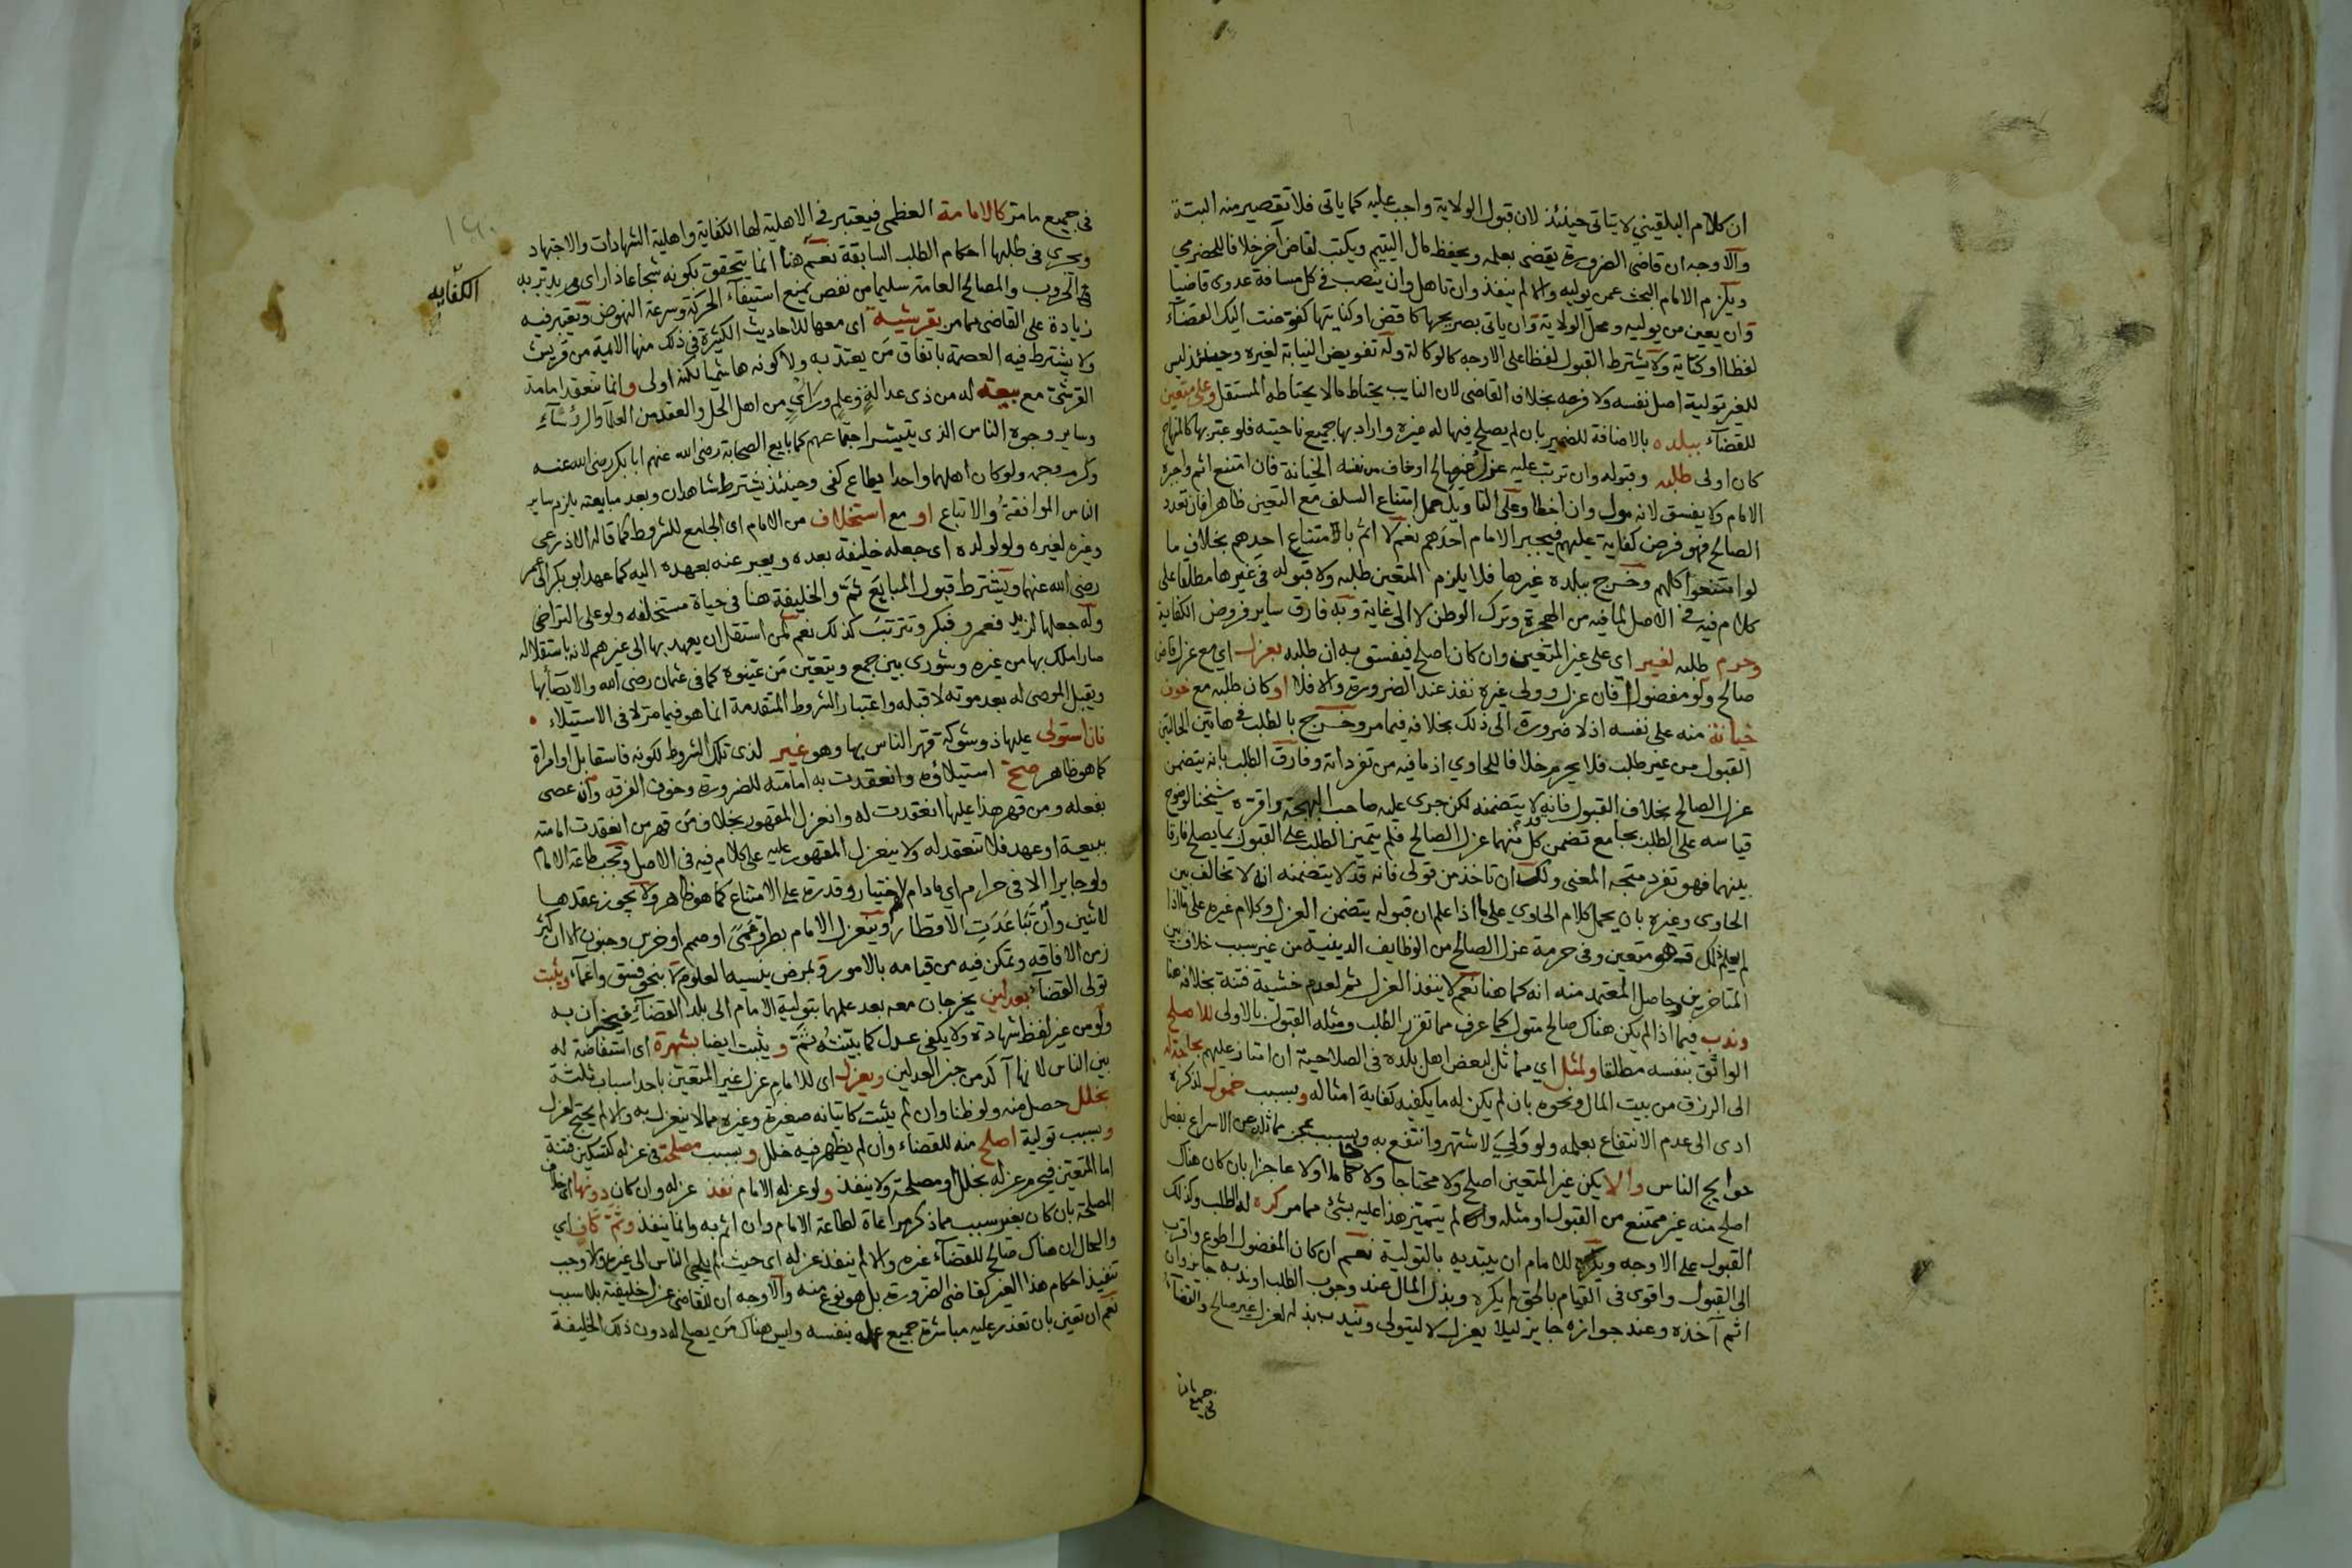 ان كلام البلقيني لا يتاتى حينئذ لان قبول الولاية واجب عليه كما ياتى فلا تقصير منه البتة
والاوجه ان قاضى الضرورة يقضى بعلمه ويحفظ مال اليتيم ويكتب لقاض آخر خلافا للحضرمي
ويلزم الامام البحث عمن يوليه والا لم ينفذ وان تاهل وان ينصب فى كل مسافة عدوى قاضيا
وان يعين من يوليه ومحل الولاية وان ياتى بصريحها كاقض او كنايتها كفوضت اليك القضآء
لفظا او كتابة ولا يشترط القبول لفظا على الاوجه كالوكالة وله تفويض النيابة لغيره وحينئذ ليس
للغير تولية اصل نفسه ولا فرعه بخلاف القاضى لان النايب يحتاط ما لا يحتاطه المستقل وعلى متعين
للقضآء ببلده بالاضافة للضمير بان لم يصلح فيها له غيره واراد بها جميع ناحيته فلو عبر بها كالمنهاج
كان اولى طلبه وقبوله وان ترتب عليه عزل صالح او خاف من نفسه الخيانة فان امتنع اثم واجبره
الامام ولا يفسق لانه مول وان اخطا وعلى التاويل حمل امتناع السلف مع التعين ظاهرا فان تعدد
الصالح فهو فرض كفاية عليهم فيجبر الامام احدهم نعم لا اثم بالامتناع احدهم بخلاف ما
لو امتنعوا كلهم وخرج ببلده غيرها فلا يلزم المتعين طلبه ولا قبوله فى غيرها مطلقا على
كلام فيه فى الاصل لما فيه من الهجرة وترك الوطن لا الى غاية وبه فارق ساير فروض الكفاية
وحرم طلبه لغير اي على غير المتعين وان كان اصلح فيفسق به ان طلبه بعزل اي مع عزل قاض
صالح ولو مفضولا فان عزل وولى غيره نفذ عند الضرورة والا فلا او كان طلبه مع خوف
خيانة منه على نفسه اذ لا ضرورة الى ذلك بخلافه فيما مر وخرج بالطلب فى هاتين الحالتين
القبول من غير طلب فلا يحرم خلافا للحاوي اذ ما فيه من تفرداته وفارق الطلب بانه يتضمن
عزل الصالح بخلاف القبول فانه لا يتضمنه لكن جرى عليه صاحب البهجة واقره شيخنا لوضوح
قياسه على الطلب بجامع تضمن كل منهما عزل الصالح فلم يتميز الطلب على القبول بما يصلح فارقا
بينهما فهو تفرد متجه المعنى ولك ان تاخذ من قولى فانه قد لا يتضمنه انه لا تخالف بين
الحاوى وغيره بان يحمل كلام الحاوي على ما اذا علم ان قبوله يتضمن العزل وكلام غيره على ما اذا
لم يعلم ذلك وهو متعين وفى حرمة عزل الصالح من الوظايف الدينية من غير سبب خلاف بين
المتاخرين وحاصل المعتمد منه انه كما هنا نعم لا ينفذ العزل ثم لعدم خشية فتنة بخلافه هنا
وندب فيما اذا لم يكن هناك صالح متول كما عرف مما تقرر الطلب ومثله القبول بالاولى للاصلح
الواثق بنفسه مطلقا ولمثل اي مماثل لبعض اهل بلده فى الصلاحية ان امتاز عليهم بحاجة
الى الرزق من بيت المال ونحوه بان لم يكن له ما يكفيه كفاية امثاله وبسبب خمول لذكره
ادى الى عدم الانتفاع بعلمه ولو وَلِيَ لاشتهر وانتفع به وبسبب عجز مماثله عن الاسراع بفصل
حوايج الناس والا يكن غير المتعين اصلح ولا محتاجا ولا خاملا ولا عاجزا بان كان هناك
اصلح منه غير ممتنع من القبول او مثله ولم يتميز هذا عليه بشئ مما مر كره له الطلب وكذلك
القبول على الاوجه ويكره للامام ان يبتديه بالتولية نعم ان كان المفضول اطوع واقرب
الى القبول واقوى فى القيام بالحق لم يكره وبذل المال عند وجوب الطلب او ندبه جايز وان
اثم آخذه وعند جوازه جايز ليلا يعزل لا ليتولى ويندب بذله لعزل غير صالح والقضآء
فى جميع ما
فى جميع ما مر كالامامة العظمى فيعتبر فى الاهلية لها الكفاية واهلية الشهادات والاجتهاد
ويجرى فى طلبها احكام الطلب السابقة نعم هنا انما يتحقق بكونه شجاعا ذا راى مريد يدبر به
الكفاية
فى الحروب والمصالح العامة سليما من نقص يمنع استيفآء الحركة وسرعة النهوض ويعتبر فيه
زيادة على القاضى مما مر بقرشية اى معها للاحاديث الكثيرة فى ذلك منها الايمة من قريش
ولا يشترط فيه العصمة باتفاق مَن يعتد به ولا كونه هاشميا لكنه اولى وانما تنعقد امامة
القرشى مع بيعة له من ذى عدالةٍ وعلمٍ ورأيٍ من اهل الحل والعقد من العلمآء والرؤسآءِ
وساير وجوه الناس الذى يتيسر اجتماعهم كما بايع الصحابة رضى الله عنهم ابا بكر رضى الله عنه
وكرم وجهه ولو كان اهلهما واحدا يطاع كفى وحينئذ يشترط شاهدان وبعد مبايعته يلزم ساير
الناس الموافقةُ والاتباع او مع استخلاف من الامام اى الجامع للشروط كما قاله الاذرعى
وغيره لغيره ولو لولده اى جعله خليفة بعده ويعبر عنه بعهده اليه كما عهد ابو بكر الى عمر
رضى الله عنهما ويشترط قبول المبايَع ثَمَّ والخليفة هنا فى حياة مستخلفه ولو على التراضى
وله جعلها لزيد فعمرو فبكر وتترتب كذلك نعم لمن استقل ان يعهد بها الى غيرهم لانه باستقلاله
صار املك بها من غيره وشورى بين جمع ويتعين مَن عينوه كما فى عثمان رضى الله والايصآء بها
ويقبل الموصى له بعد موته لا قبله واعتبار الشروط المتقدمة انما هو فيما مر لا فى الاستيلاء
فان استولى عليها ذو شوكة قهر الناس بها وهو غير لذى تلك الشروط لكونه فاسقا بل او امراة
كما هو ظاهر صح استيلاؤه وانعقدت به امامته للضرورة وخوف الفرقة وان عصى
بفعله ومن قهر هذا عليها انعقدت له وانعزل المقهور بخلاف من قهر من انعقدت امامته
ببيعة او عهد فلا تنعقد له ولا ينعزل المقهور عليه على كلام فيه فى الاصل وتجب طاعة الامام
ولو جايرا الا فى حرام اي ما دام لاختيار وقدرة على الامتناع كما هو ظاهر ولا يجوز عقدها
لاثنين وان تَبَاعَدَتِ الاقطار وينعزل الامام بطرو عَمىً او صمم او خرس وجنون الا ان كثر
زمن الافاقه وتمكن فيه من قيامه بالامور وبمرض ينسيه العلوم لا بنحو فسق واغمآء ويثبت
تولى القضآء بعدلين يخرجان معه بعد علمهما بتولية الامام الى بلد القضآء فيخبران به
ولو من غير لفظ شهادة ولا يكفى عدل كما بَيَّنتُه ثَمَّ ويثبت ايضا بشهرة اى استفاضة له
بين الناس لانها آكد من خبر العدلين ويعزل اى للامام عزل غير المتعين باحد اسباب ثلثة
بخلل حصل منه ولو ظنا وان لم يثبت كاتيانه صغيرة وغيره مما لا ينعزل به والا لم يحتج لعزل
وبسبب تولية اصلح منه للقضاء وان لم يظهر فيه خلل وبسبب مصلحة فى عزله كتسكين فتنة
اما المتعين فيحرم عزله بخلل او مصلحة ولا ينفذ ولو عزله الامام نفذ عزله وان كان دونها اى خلاف
المصلحة بان كان بغير سبب مما ذكر مراعاة لطاعة الامام وان اثم به وانما ينفذ وثَمَّ كاف اي
والحال ان هناك صالح للقضآء غيره والا لم ينفذ عزله اى حيث لم يلجئ الناس الى غيره ولا وجب
تنفيذ احكام هذا الغير كقاضى الضرورة بل هو نوع منه والاوجه ان للقاضى عزل خليفته بلا سبب
نعم ان تعين بان تعذر عليه مباشرة جميع عمله بنفسه وليس هناك مَن يصلح له دون ذلك الخليفة